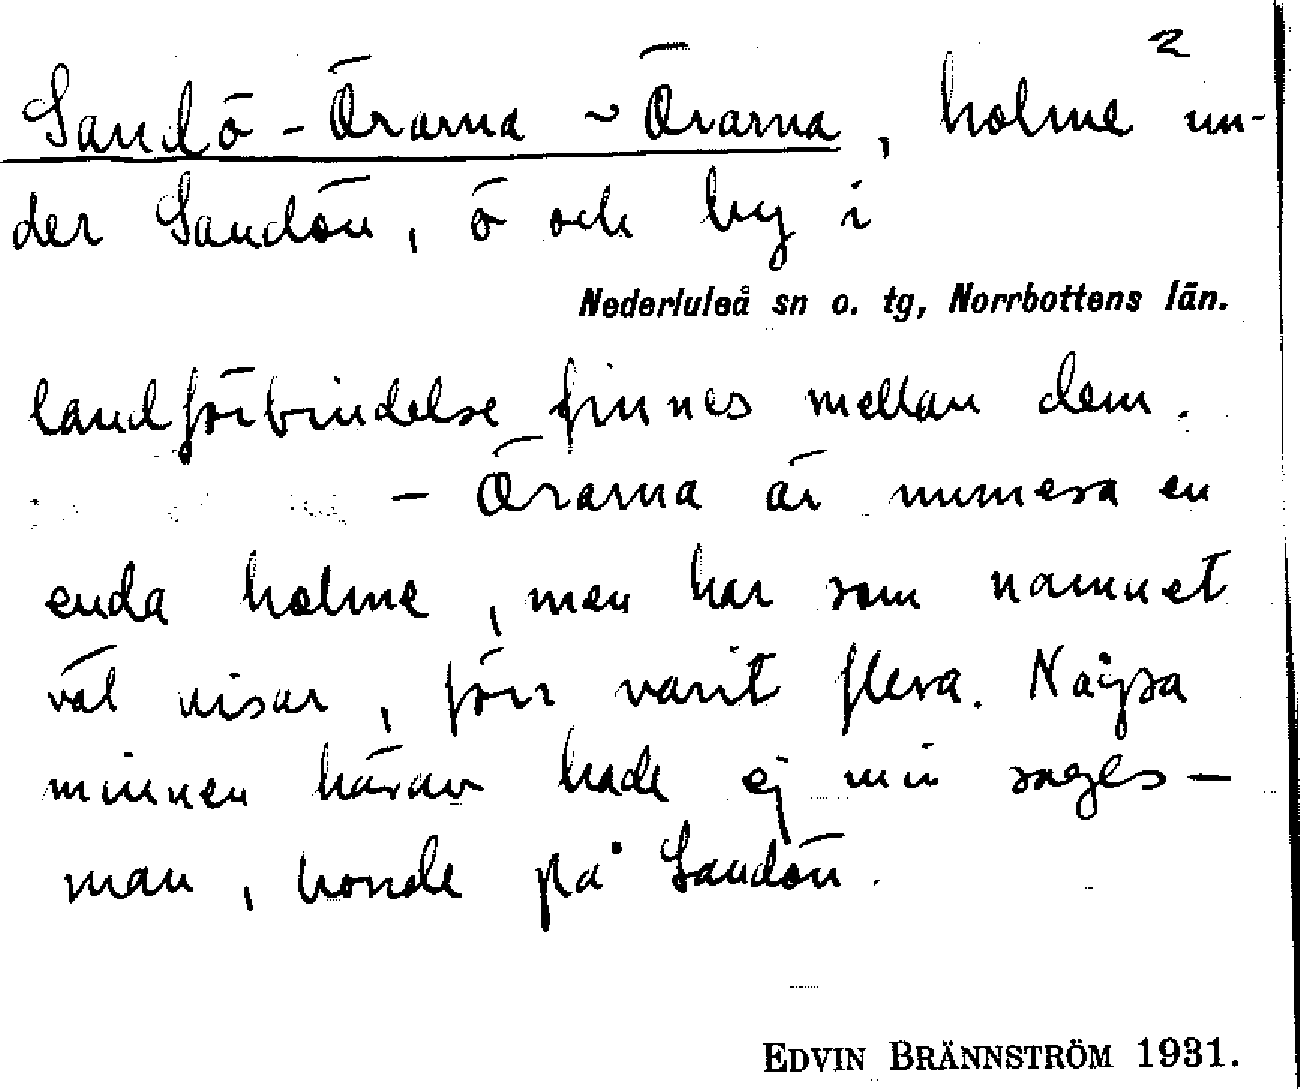 2
Sandö-Örarna ~ Örarna, holme un-
der Sandön, ö och by i
Nederluleå sn o. tg, Norrbottens län.
landförbindelse finnes mellan dem.
- Örarna är numera en
enda holme, men har som namnet
väl visar, förr varit flera. Några
minnen härav hade ej min sages-
man, bonde på Sandön.
EDVIN BRÄNNSTRÖM 1931.